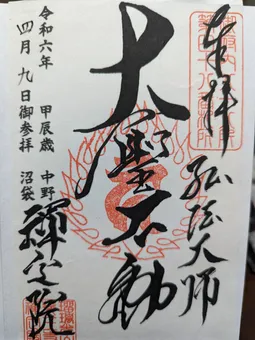 奉拝
弘法大師
大聖不動
令和六年　甲辰歳　中野
四月九日御参拝　沼袋
禅定院